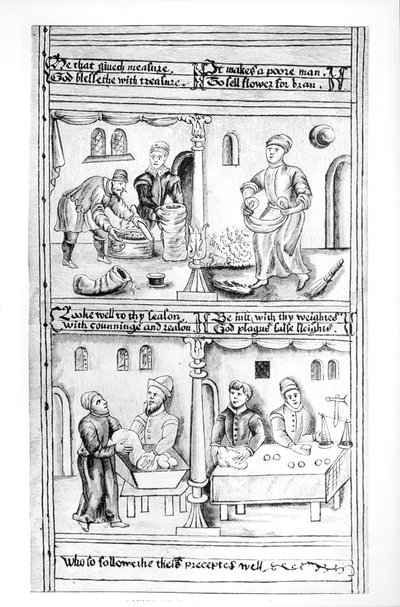 He that giueth measure,
God blessethe with treasure.
It makes a poore man,
To sell flower for bran.
Looke well to thy season,
With counninge and reason.
Be iust, with thy weightes
God plagus false sleights.
Who so followethe theis preceptes well,